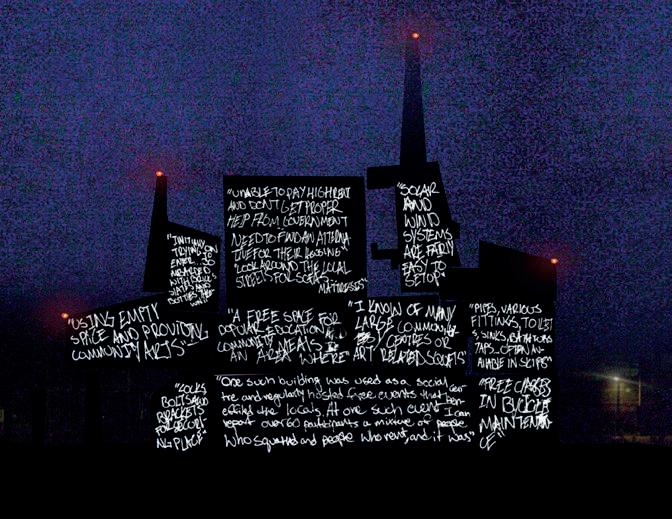 "UNABLE TO PAY HIGH RENT
AND DON'T GET PROPER
HELP FROM GOVERNMENT
NEED TO FIND AN ALTERNA
TIVE FOR THEIR HOUSING"
"LOOK AROUND THE LOCAL
STREETS FOR SOFAS
MATTRESSES"
"SOLAR
AND
WIND
SYSTEMS
ARE FAIRLY
EASY TO
SETUP"
"INITIALLY
TRYING TO
ENTER
"USING EMPTY
SPACE AND PROVIDING
COMMUNITY ARTS"
"A FREE SPACE FOR
POPULAR EDUCATION
COMMUNITY MEALS
AN AREA WHERE"
"I KNOW OF MANY
LARGE COMMUNI
TY CENTRES OR
ART RELATED SQUATS"
"PIPES, VARIOUS
FITTINGS, TOILET
S, SINKS, BATHTUBS
TAPS... OFTEN AV-
AILABLE IN SKIPS"
"LOCKS
BOLTS AND
BRACKETS
FOR SECURI-
NG PLACE"
"One such building was used as a social cen
tre and regularly hosted free events that ben-
efited the locals. At one such event I can
report over 60 participants a mixture of people
who squatted and people who rent, and it was"
"FREE CLASSES
IN BICYCLE
MAINTENAN
CE"